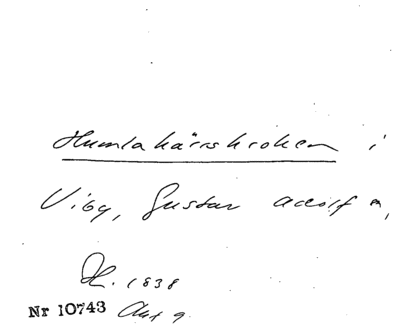 Humlakärrskroken i
Viby, Gustav Adolf n,
H. 1838
Nr 10743 Akt 9